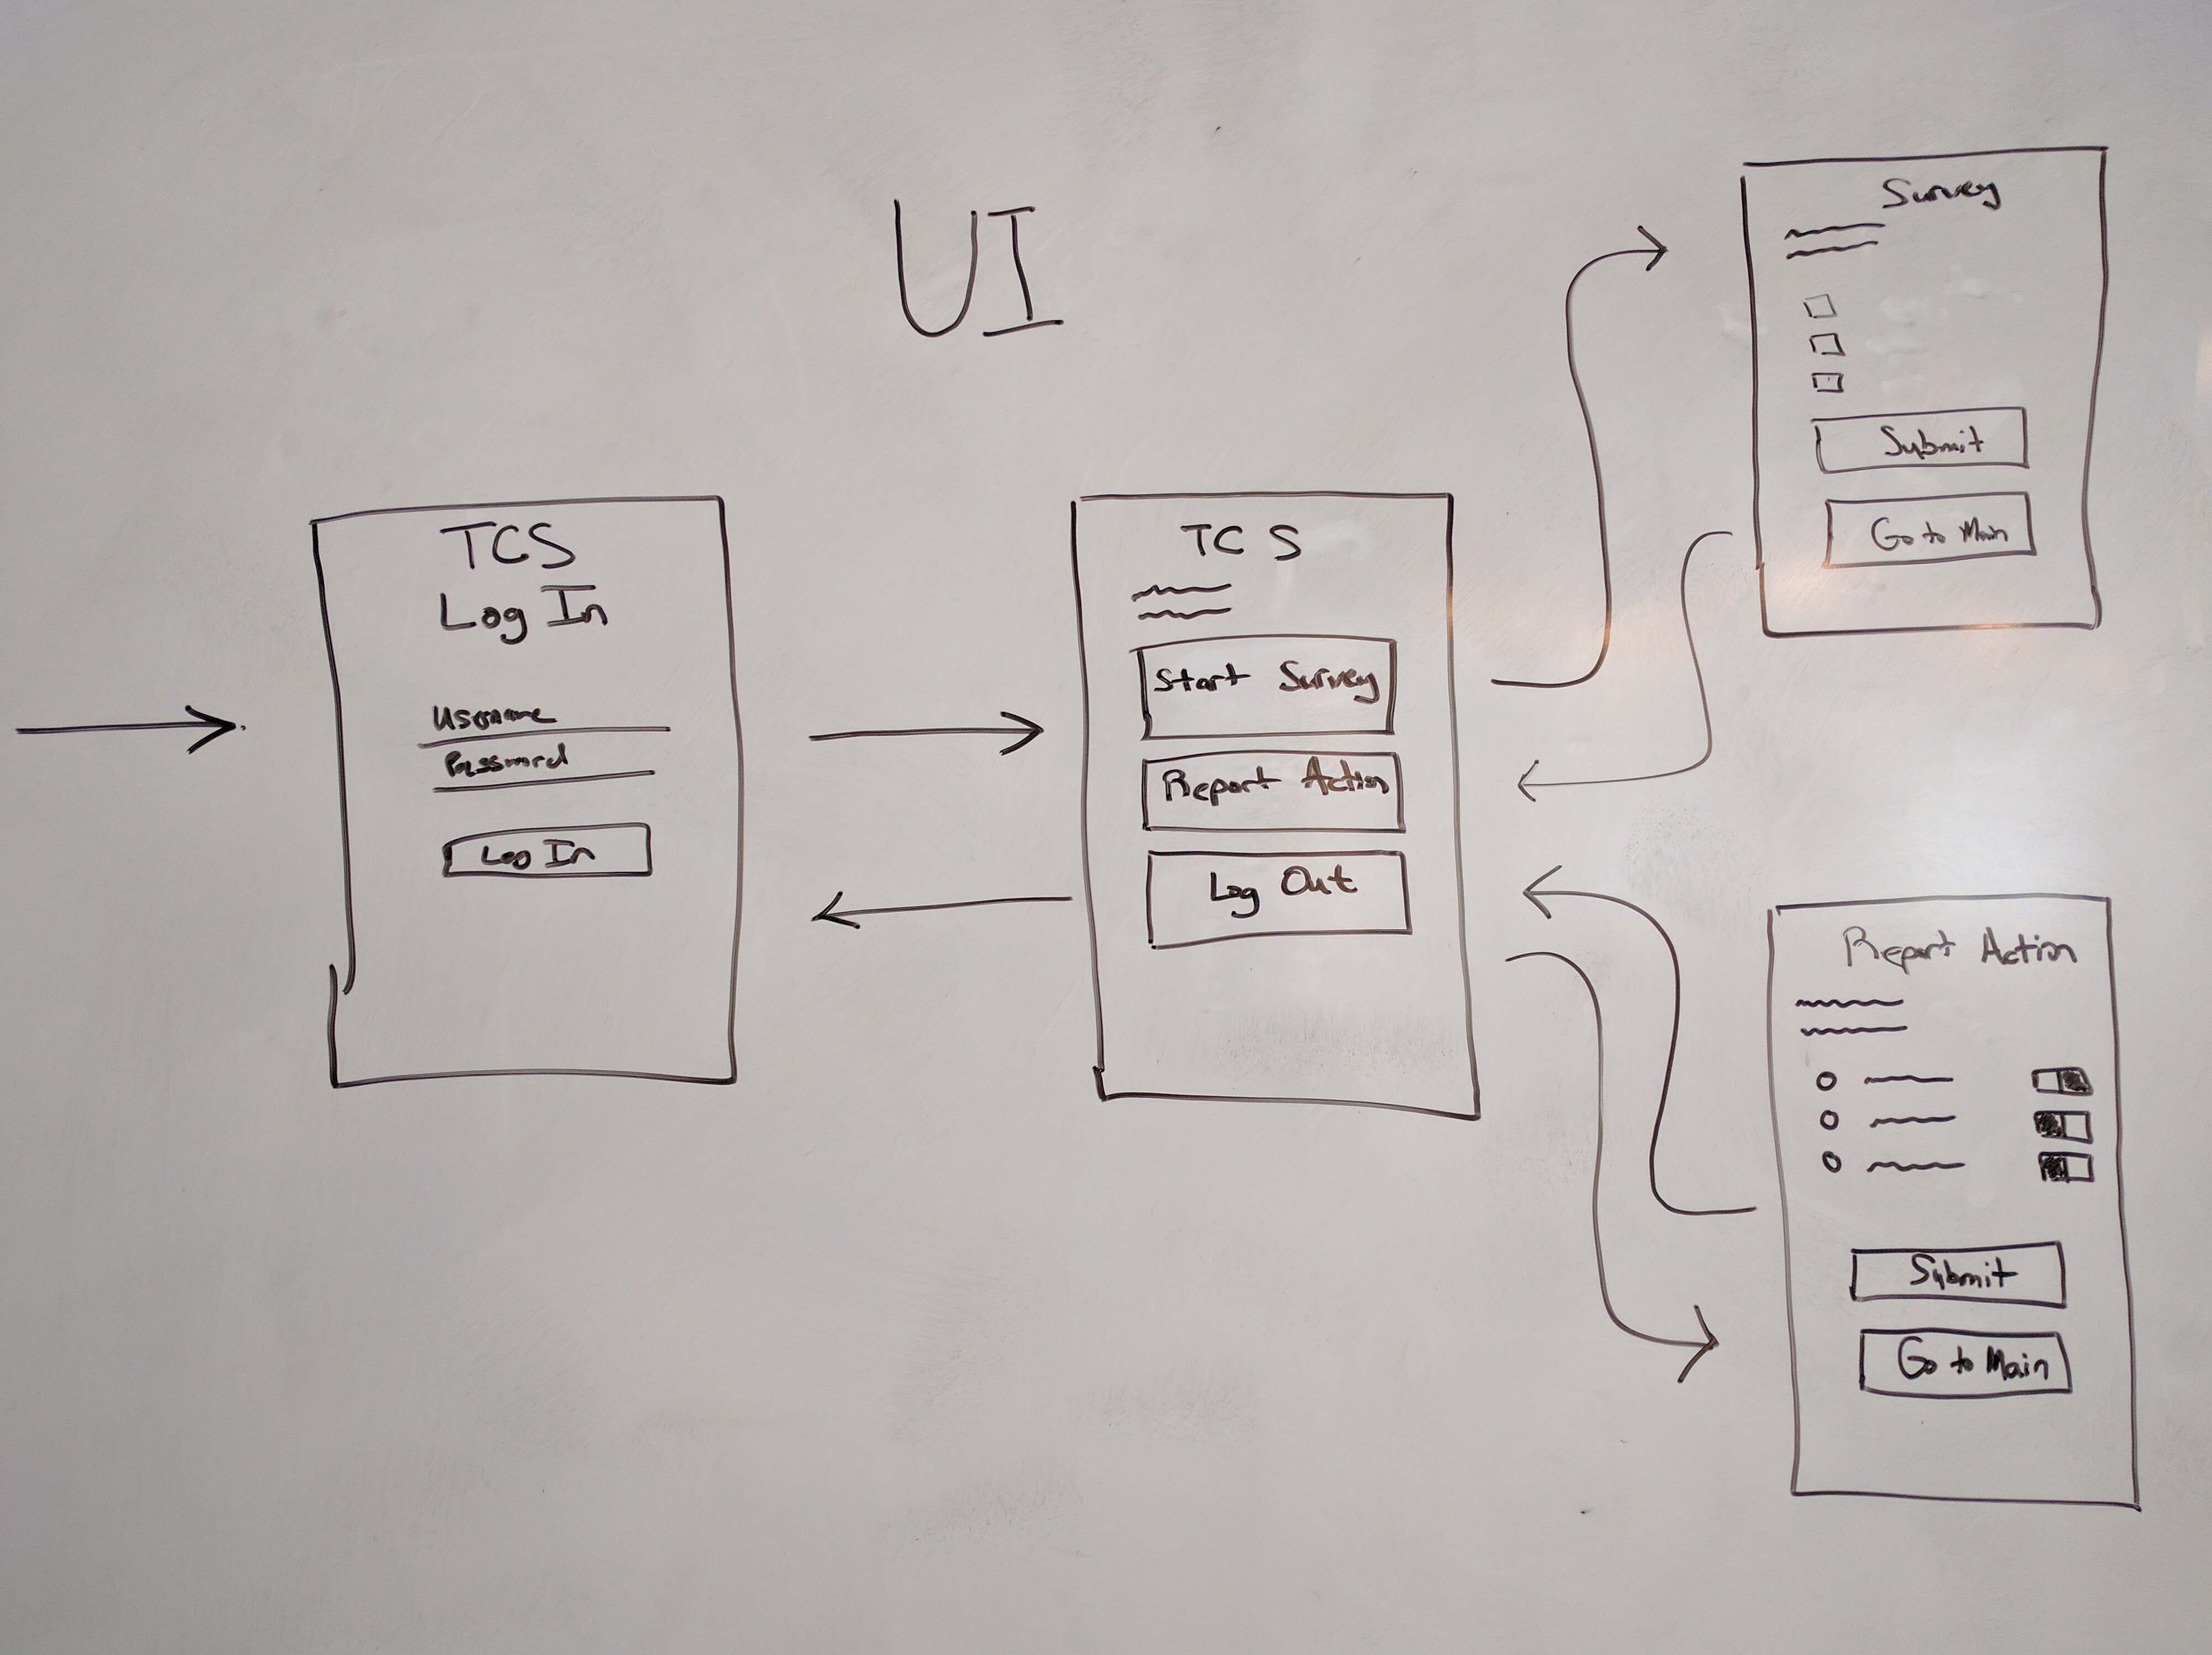 UI
TCS
Log In
Username
Password
Log In
TCS
Start Survey
Report Action
Log Out
Survey
Submit
Go to Main
Report Action
Submit
Go to Main